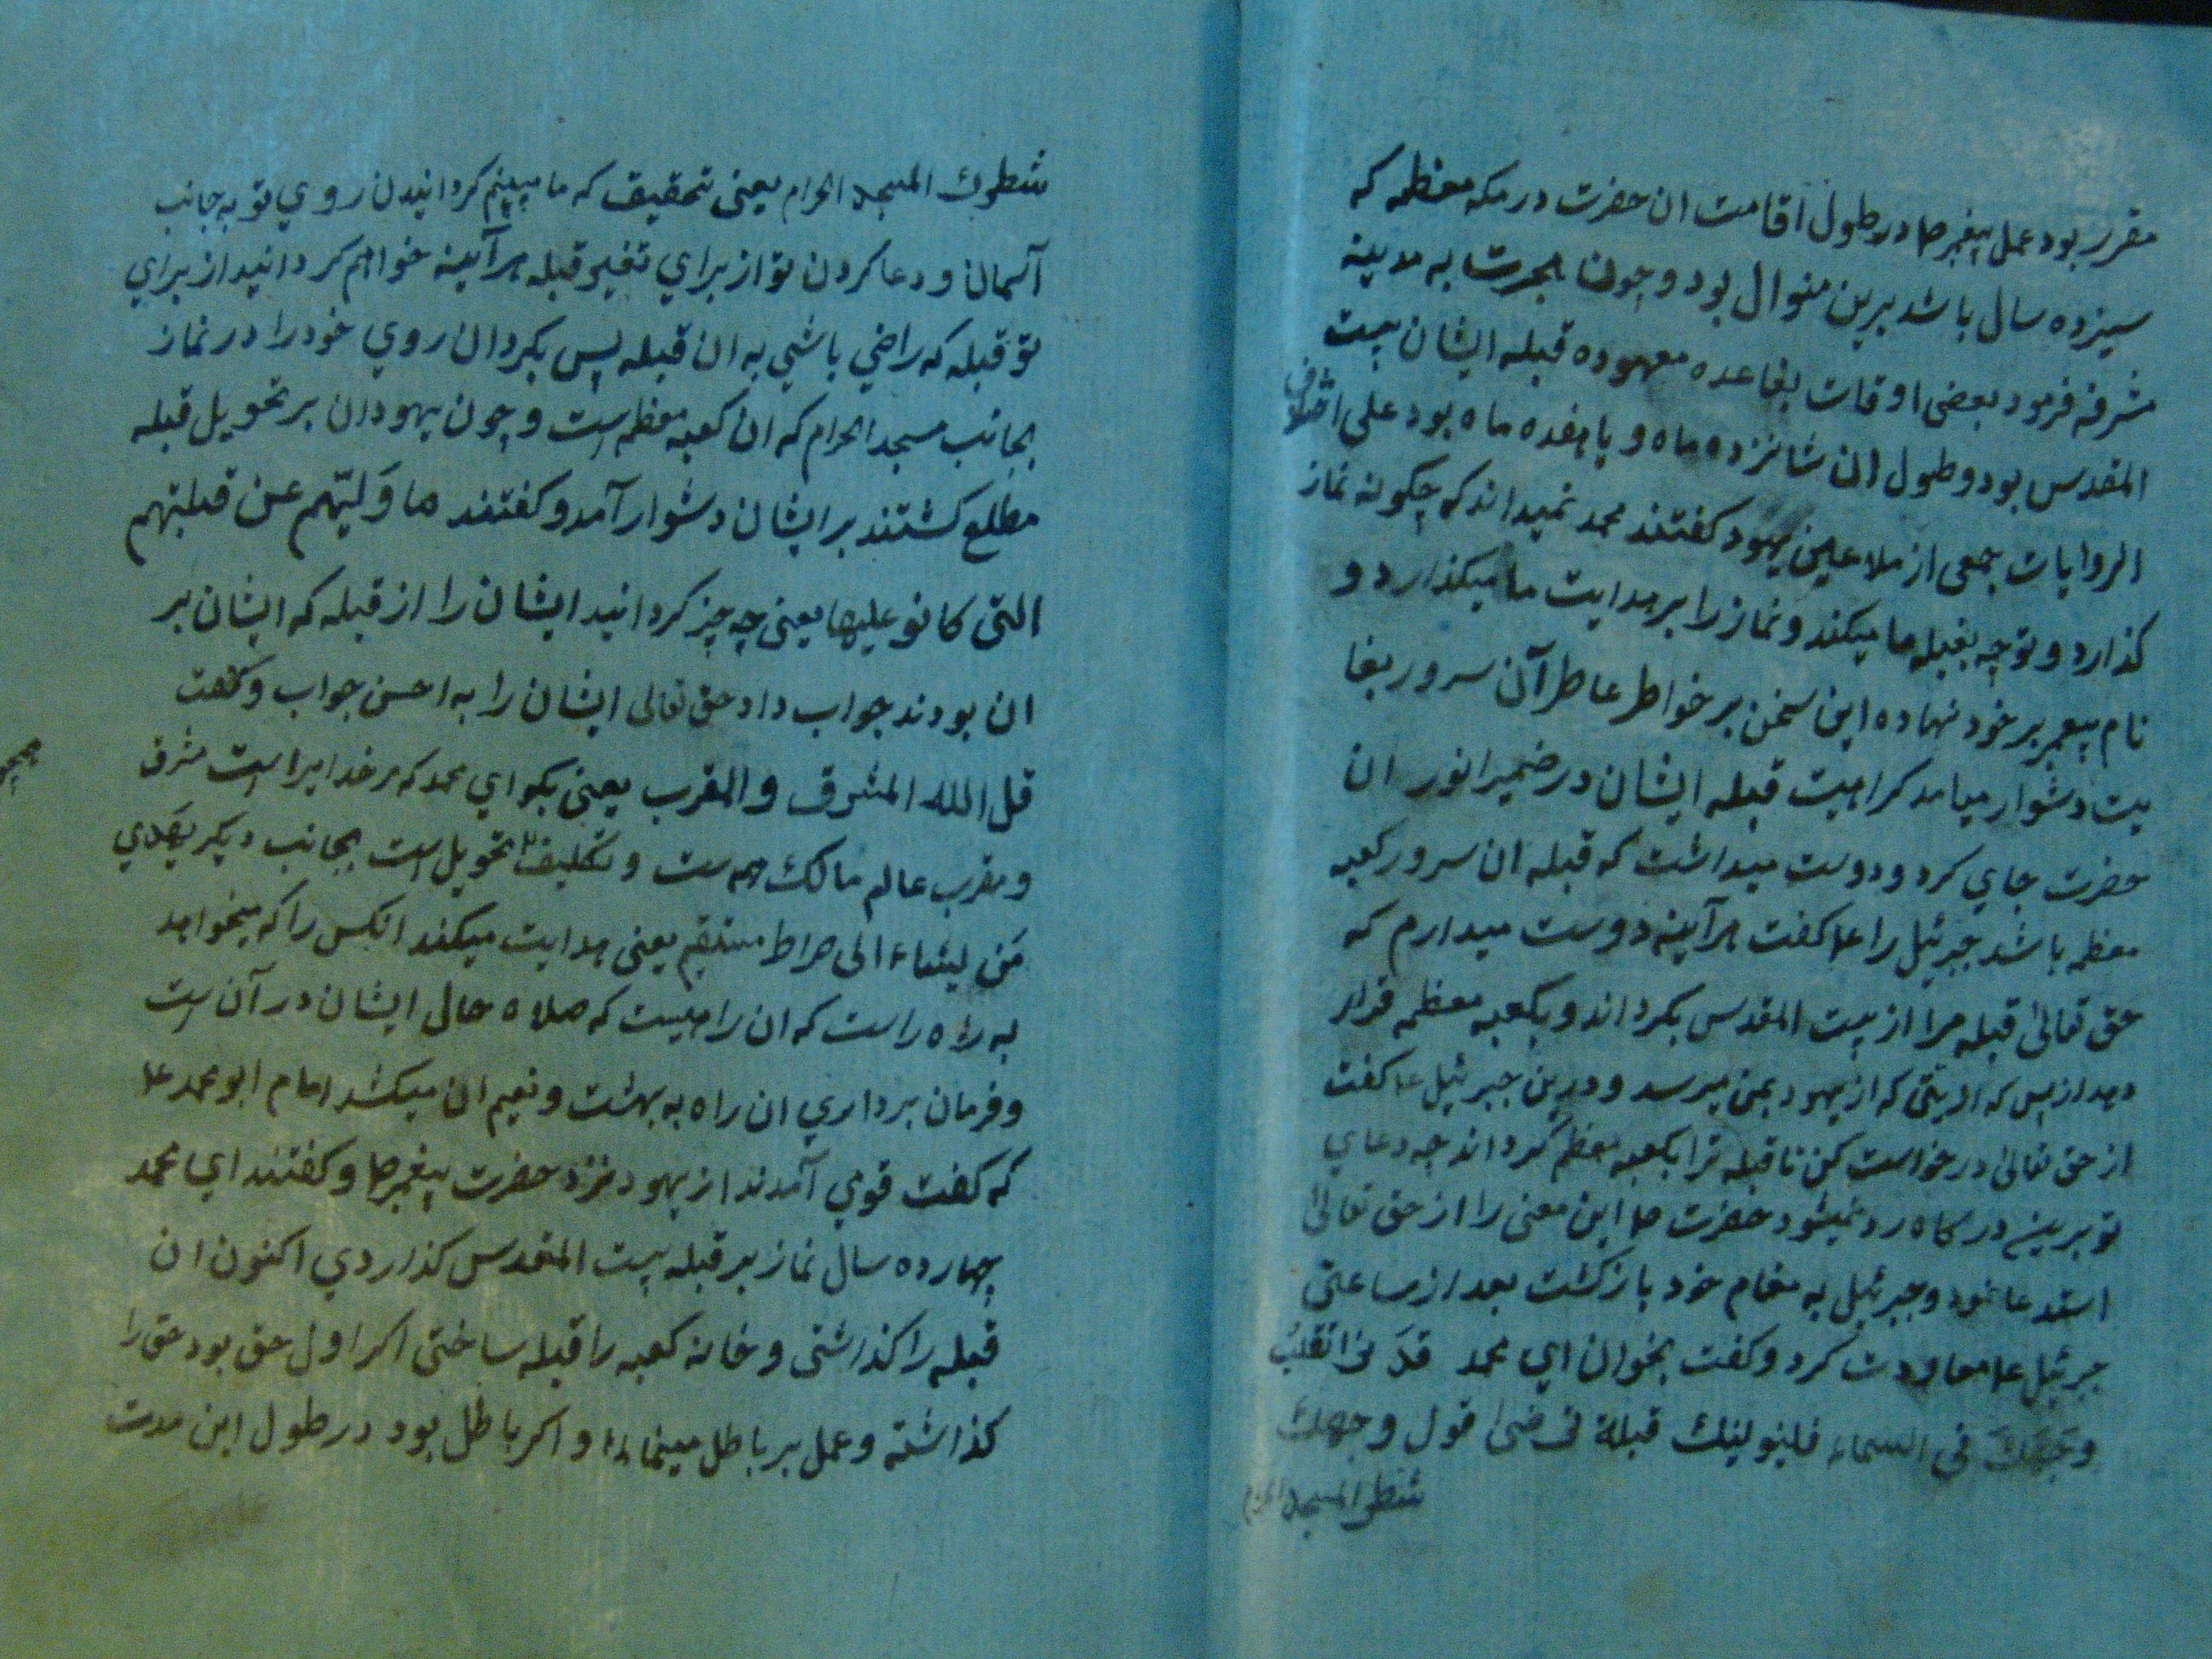 مقرر بود عمل پیغمبر ص در طول اقامت ان حضرت در مکه معظمه که
سیزده سال باشد برین منوال بود و چون هجرت به مدینه
مشرفه فرمود بعضی اوقات بقاعده معهوده قبله ایشان بیت
المقدس بود و طول ان شانزده ماه و یا هفده ماه بود علی اختلاف
الروایات جمعی از ملاعین یهود کفتند محمد نمیداند که چکونه نماز
کذارد و توجه بقبله ما میکند و نماز را بر هدایت ما میکذارد و
نام پیغمبر بر خود نهاده این سخن بر خواطر عاطر آن سرور بغا
یت دشوار میامد کراهیت قبله ایشان در ضمیر انور ان
حضرت جای کرد و دوست میداشت که قبله ان سرور کعبه
معظمه باشد جبرئیل را عا کفت هرآینه دوست میدارم که
حق تعالی قبله مرا از بیت المقدس بکرداند و بکعبه معظمه قرار
دهد از بس که اذیتی که از یهود بمن میرسد و درین جبرئیل عا کفت
از حق تعالی درخواست کن تا قبله ترا بکعبه معظم کرداند چه دعای
تو برین درکاه رد نمیشود حضرت ص این معنی را از حق تعالی
استدعا نمود و جبرئیل به مقام خود بازکشت بعد از ساعتی
جبرئیل عا معاودت کرد و کفت بخوان ای محمد قد نرا تقلب
وجهک فی السماء فلنولینک قبلة ترضی فول وجهک
شطر المسجد الحرام
شطرک المسجد الحرام یعنی تحقیق که ما میبینم کردانیدن روی تو به جانب
آسمان و دعا کردن تو از برای تغیر قبله هرآینه خواهم کردانید از برای
تو قبله که راضی باشی به ان قبله پس بکردان روی خود را در نماز
بجانب مسجد الحرام که ان کعبه معظم است و چون یهودان بر تحویل قبله
مطلع کشتند بر ایشان دشوار آمد و کفتند ما ولیهم عن قبلتهم
التی کانو علیها یعنی چه چیز کردانید ایشان را از قبله که ایشان بر
ان بودند جواب داد حق تعالی ایشان را به احسن جواب و کفت
قل الله المشرق و المغرب یعنی بکو ای محمد که مر خدایراست مشرق
و مغرب عالم مالک همه ست و تکلیف تحویل است بجانب دیکر یهدی
من یشاء الی صراط مستقیم یعنی هدایت میکند انکس را که میخواهد
به راه راست که ان راهیست که صلاه حال ایشان در آن است
و فرمان برداری ان راه به بهشت و نعیم ان میکشد امام ابو محمد عا
که کفت قومی آمدند از یهود نزد حضرت پیغمبر ص و کفتند ای محمد
چهارده سال نماز بر قبله بیت المقدس کذاردی اکنون ان
قبله را کذاشتی و خانه کعبه را قبله ساختی اکر اول حق بود حق را
کذاشته و عمل بر باطل مینمای و اکر باطل بود در طول این مدت